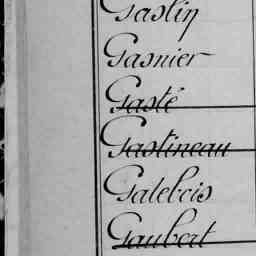 Gaslin
Gasnier
Gasté
Gastineau
Galebois
Gaubert